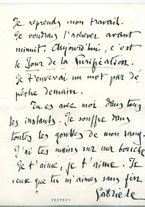 Je reprends mon travail.
Je voudrais l'achever avant
minuit. Aujourd'hui, c'est
le Jour de la Purification.
Je t'enverrai un mot par de
pêche demain.
Tu es avec moi dans tous
les instants. Je souffre sous
toutes les gouttes de mon sang.
J'ai tes mains sur ma bouche
Je t'aime, je t'aime. Je
veux que tu m'aimes sans fin
Gabriele